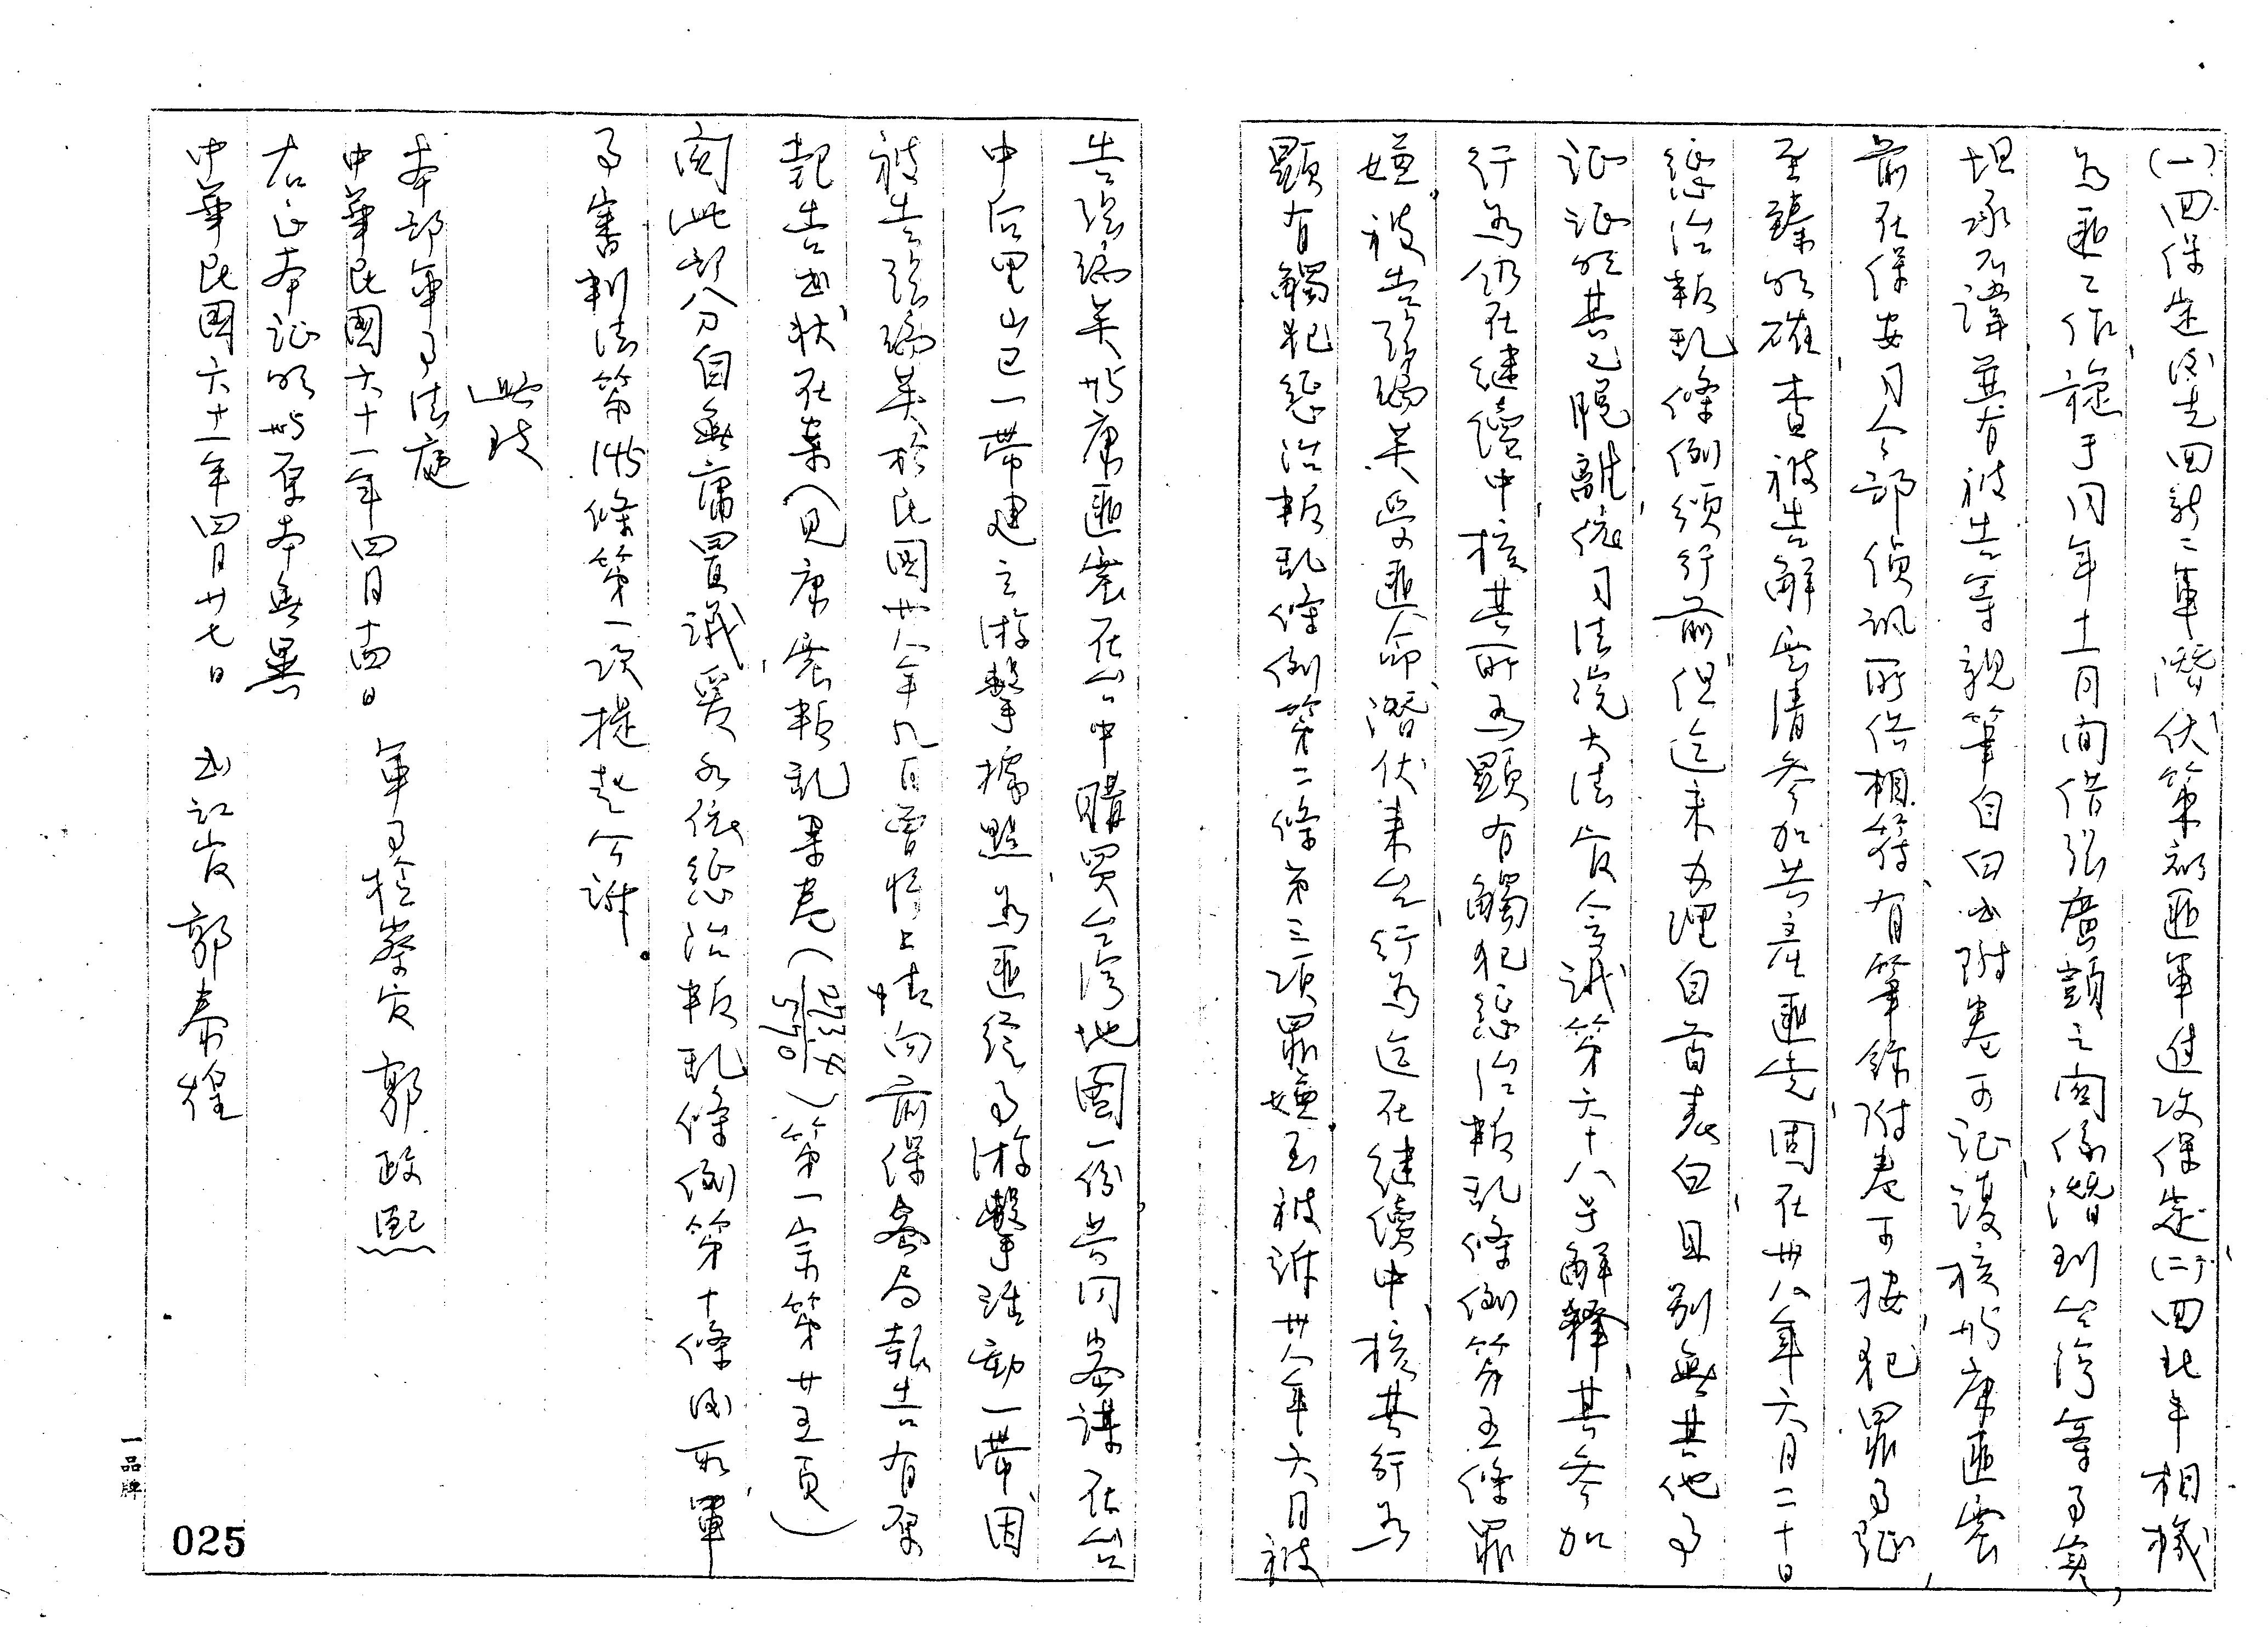 (一)回保定活走回新二軍潛伏策劃匪軍進攻保定(二)回北平相機
為匪工作旋于同年十一月間借張廣頡之關係潛到台灣等事實,
坦承不諱並有被告等親筆自白书附卷可証複核與康匪震
前在保安司令部偵訊所供相符有筆錄附卷可按犯罪事証
至臻明確查被告解雲清參加共產匪黨固在卅八年六月二十日
懲治叛乱條例頒行前但迄未办理自首表白且別無其他事
証証明其已脫離依司法院大法官会議第六十八号解释其參加
行為仍在継續中核其所為顯有觸犯懲治叛乱條例第五條罪
嫌被告張瑞英受匪命潛伏来台行為迄在継續中核其行為
顯有觸犯懲治叛乱條例第二條第三項罪嫌至被訴卅八年六月被
告張瑞英與康匪震在台中購買台灣地圖一份共同密謀在台
中后里山已一帶建立游擊據點為匪從事游擊活動一節因
被告張瑞英於民國卅八年九月曾将上情向前保密局報告有原
報告书狀在案(見康震叛乱案卷( )第一宗第廿五頁)
関此部分自無庸置議爰各依懲治叛乱條例第十條後段軍
事審判法第145條第一項提起公訴。
此致
本部軍事法庭
中華民國六十一年四月十四日 軍事檢察官 郭政熙
右正本証明與原本無異
中華民國六十一年四月廿七日 书記官 郭秦煌
一品牌
025